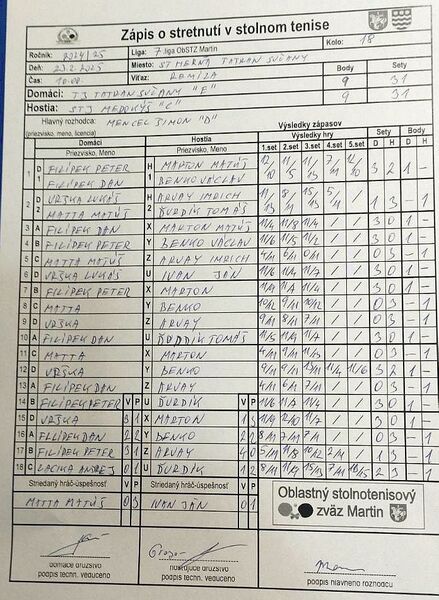 Zápis o stretnutí v stolnom tenise
Ročník: 2024/25 Liga: 7. liga ObSTZ Martin Kolo: 18
Deň: 23.2.2025 Miesto: ST HERŇA TATRAN SUČANY
Čas: 10.00 Víťaz: REMÍZA Body Sety
Domáci: TJ TATRAN SUČANY "E" 9 31
Hostia: STJ MEDOKÝŠ "C" 9 31
Hlavný rozhodca: MENCEL ŠIMON "D"
(priezvisko, meno, licencia) Výsledky zápasov
Domáci Hostia Výsledky hry Sety Body
Priezvisko, Meno Priezvisko, Meno 1.set 2.set 3.set 4.set 5.set D H D H
1 D1 FILÍPEK PETER H1 MARTON MATÚŠ 3 2 1 -
FILÍPEK DAN BENKO VÁCLAV
2 D2 VRŠKA LUKÁŠ H2 ARVAY IMRICH 1 3 - 1
MATTA MATÚŠ ĎURDÍK TOMÁŠ
3 A FILÍPEK DAN X MARTON MATÚŠ 11/4 11/8 11/4 / / 3 0 1 -
4 B FILÍPEK PETER Y BENKO VÁCLAV 11/6 11/5 11/2 / / 3 0 1 -
5 C MATTA MATÚŠ Z ARVAY IMRICH 4/11 6/11 0/11 / / 0 3 - 1
6 D VRŠKA LUKÁŠ U IVAN JÁN 11/6 11/4 11/7 / / 3 0 1 -
7 B FILÍPEK PETER X MARTON 11/9 11/4 11/4 / / 3 0 1 -
8 C MATTA Y BENKO 10/12 9/11 10/12 / / 0 3 - 1
9 D VRŠKA Z ARVAY 9/11 8/11 7/11 / / 0 3 - 1
10 A FILÍPEK DAN U ĎURDÍK TOMÁŠ 11/5 11/9 11/4 / / 3 0 1 -
11 C MATTA X MARTON 4/11 9/11 / / 0 3 - 1
12 D VRŠKA Y BENKO 11/4 11/6 3 2 1 -
13 A FILÍPEK DAN Z ARVAY 4/11 6/11 7/11 / / 0 3 - 1
14 B FILÍPEK PETER V P U ĎURDÍK V P / / 3 0 1 -
15 D VRŠKA 3 1 X MARTON 1 3 11/9 12/10 11/7 / / 3 0 1 -
16 A FILÍPEK DAN 2 2 Y BENKO 2 2 8/11 7/11 / / 0 3 - 1
17 B FILÍPEK PETER 3 1 Z ARVAY 4 0 / 1 3 - 1
18 C LACIKA ANDREJ 0 1 U ĎURDÍK 1 2 2 3 - 1
Striedaný hráč-úspešnosť V P Striedaný hráč-úspešnosť V P
MATTA MATÚŠ 0 3 IVAN JÁN 0 1
Oblastný stolnotenisový
zväz Martin
domáce družstvo hosťujúce družstvo
podpis techn. vedúceho podpis techn. vedúceho podpis hlavného rozhodcu